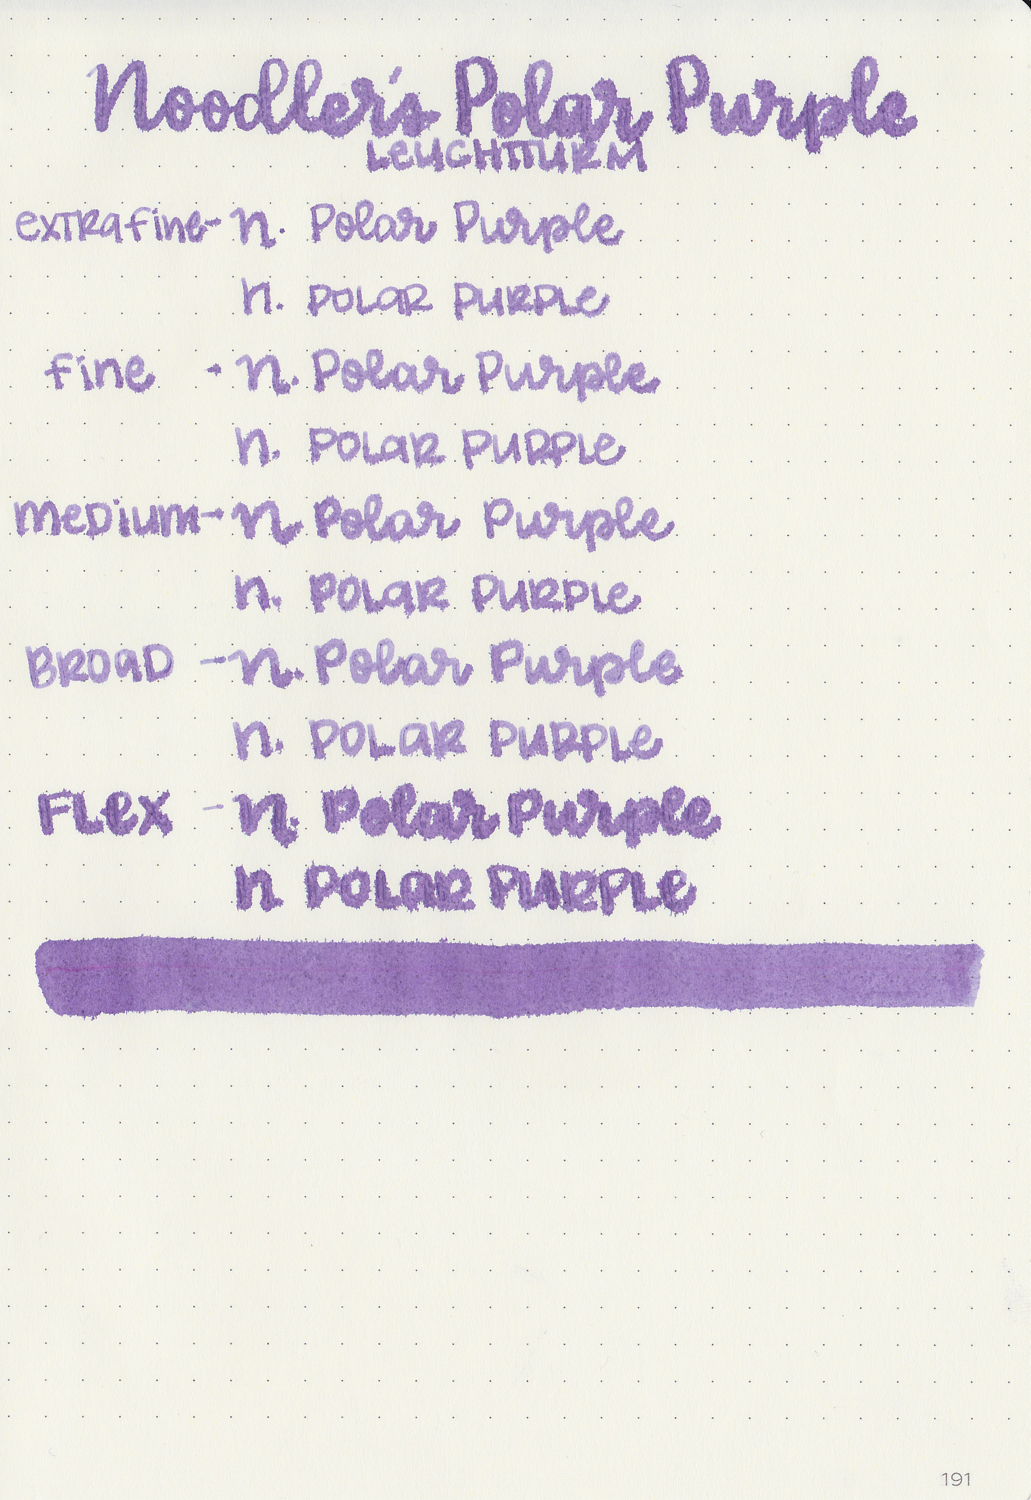 Noodler's Polar Purple
LEUCHTTURM
extrafine - n. Polar Purple
n. POLAR PURPLE
fine - n. Polar Purple
n. POLAR PURPLE
meDium - n. Polar Purple
n. POLAR PURPLE
BROAD - n. Polar Purple
n. POLAR PURPLE
FLEX - n. Polar Purple
n. POLAR PURPLE
191